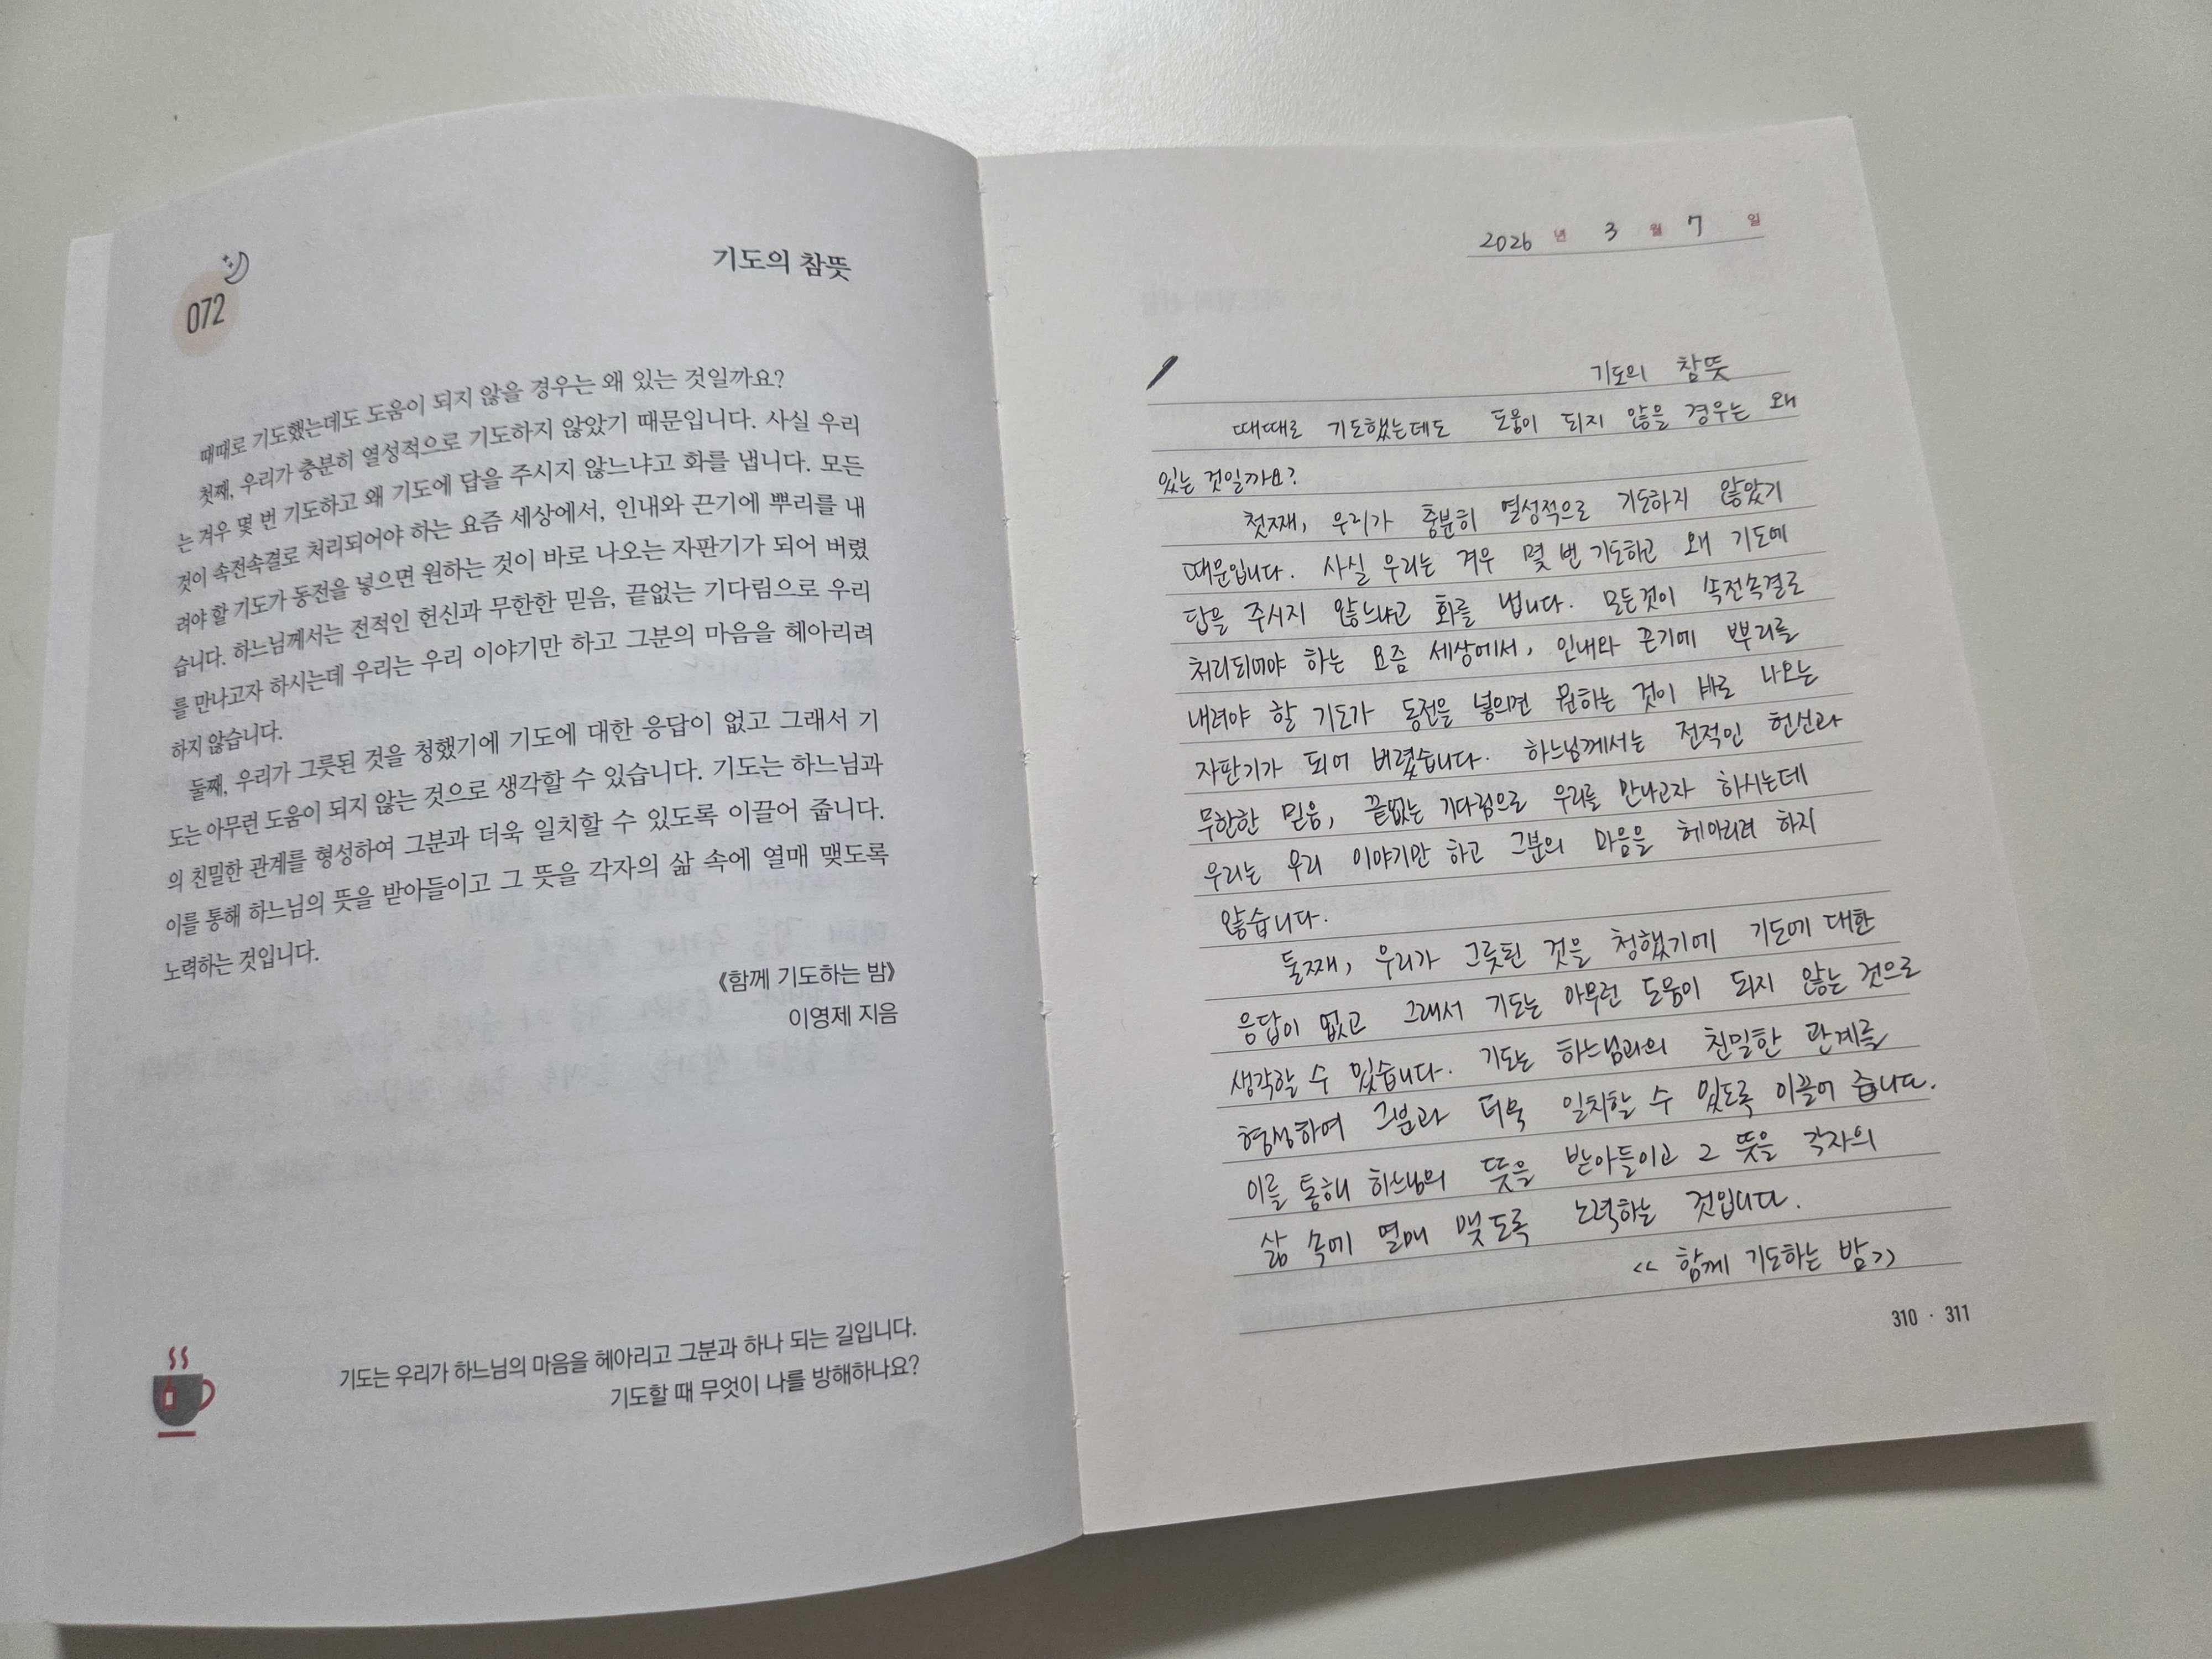 072
기도의 참뜻
때때로 기도했는데도 도움이 되지 않을 경우는 왜 있는 것일까요?
첫째, 우리가 충분히 열성적으로 기도하지 않았기 때문입니다. 사실 우리
는 겨우 몇 번 기도하고 왜 기도에 답을 주시지 않느냐고 화를 냅니다. 모든
것이 속전속결로 처리되어야 하는 요즘 세상에서, 인내와 끈기에 뿌리를 내
려야 할 기도가 동전을 넣으면 원하는 것이 바로 나오는 자판기가 되어 버렸
습니다. 하느님께서는 전적인 헌신과 무한한 믿음, 끝없는 기다림으로 우리
를 만나고자 하시는데 우리는 우리 이야기만 하고 그분의 마음을 헤아리려
하지 않습니다.
둘째, 우리가 그릇된 것을 청했기에 기도에 대한 응답이 없고 그래서 기
도는 아무런 도움이 되지 않는 것으로 생각할 수 있습니다. 기도는 하느님과
의 친밀한 관계를 형성하여 그분과 더욱 일치할 수 있도록 이끌어 줍니다.
이를 통해 하느님의 뜻을 받아들이고 그 뜻을 각자의 삶 속에 열매 맺도록
노력하는 것입니다.
《함께 기도하는 밤》
이영제 지음
기도는 우리가 하느님의 마음을 헤아리고 그분과 하나 되는 길입니다.
기도할 때 무엇이 나를 방해하나요?
2026 년 3 월 7 일
기도의 참뜻
때때로 기도했는데도 도움이 되지 않을 경우는 왜
있는 것일까요?
첫째, 우리가 충분히 열성적으로 기도하지 않았기
때문입니다. 사실 우리는 겨우 몇 번 기도하고 왜 기도에
답을 주시지 않느냐고 화를 냅니다. 모든것이 속전속결로
처리되어야 하는 요즘 세상에서, 인내와 끈기에 뿌리를
내려야 할 기도가 동전을 넣으면 원하는 것이 바로 나오는
자판기가 되어 버렸습니다. 하느님께서는 전적인 헌신과
무한한 믿음, 끝없는 기다림으로 우리를 만나고자 하시는데
우리는 우리 이야기만 하고 그분의 마음을 헤아리려 하지
않습니다.
둘째, 우리가 그릇된 것을 청했기에 기도에 대한
응답이 없고 그래서 기도는 아무런 도움이 되지 않는 것으로
생각할 수 있습니다. 기도는 하느님과의 친밀한 관계를
형성하여 그분과 더욱 일치할 수 있도록 이끌어 줍니다.
이를 통해 하느님의 뜻을 받아들이고 그 뜻을 각자의
삶 속에 열매 맺도록 노력하는 것입니다.
<< 함께 기도하는 밤 >>
310 · 311